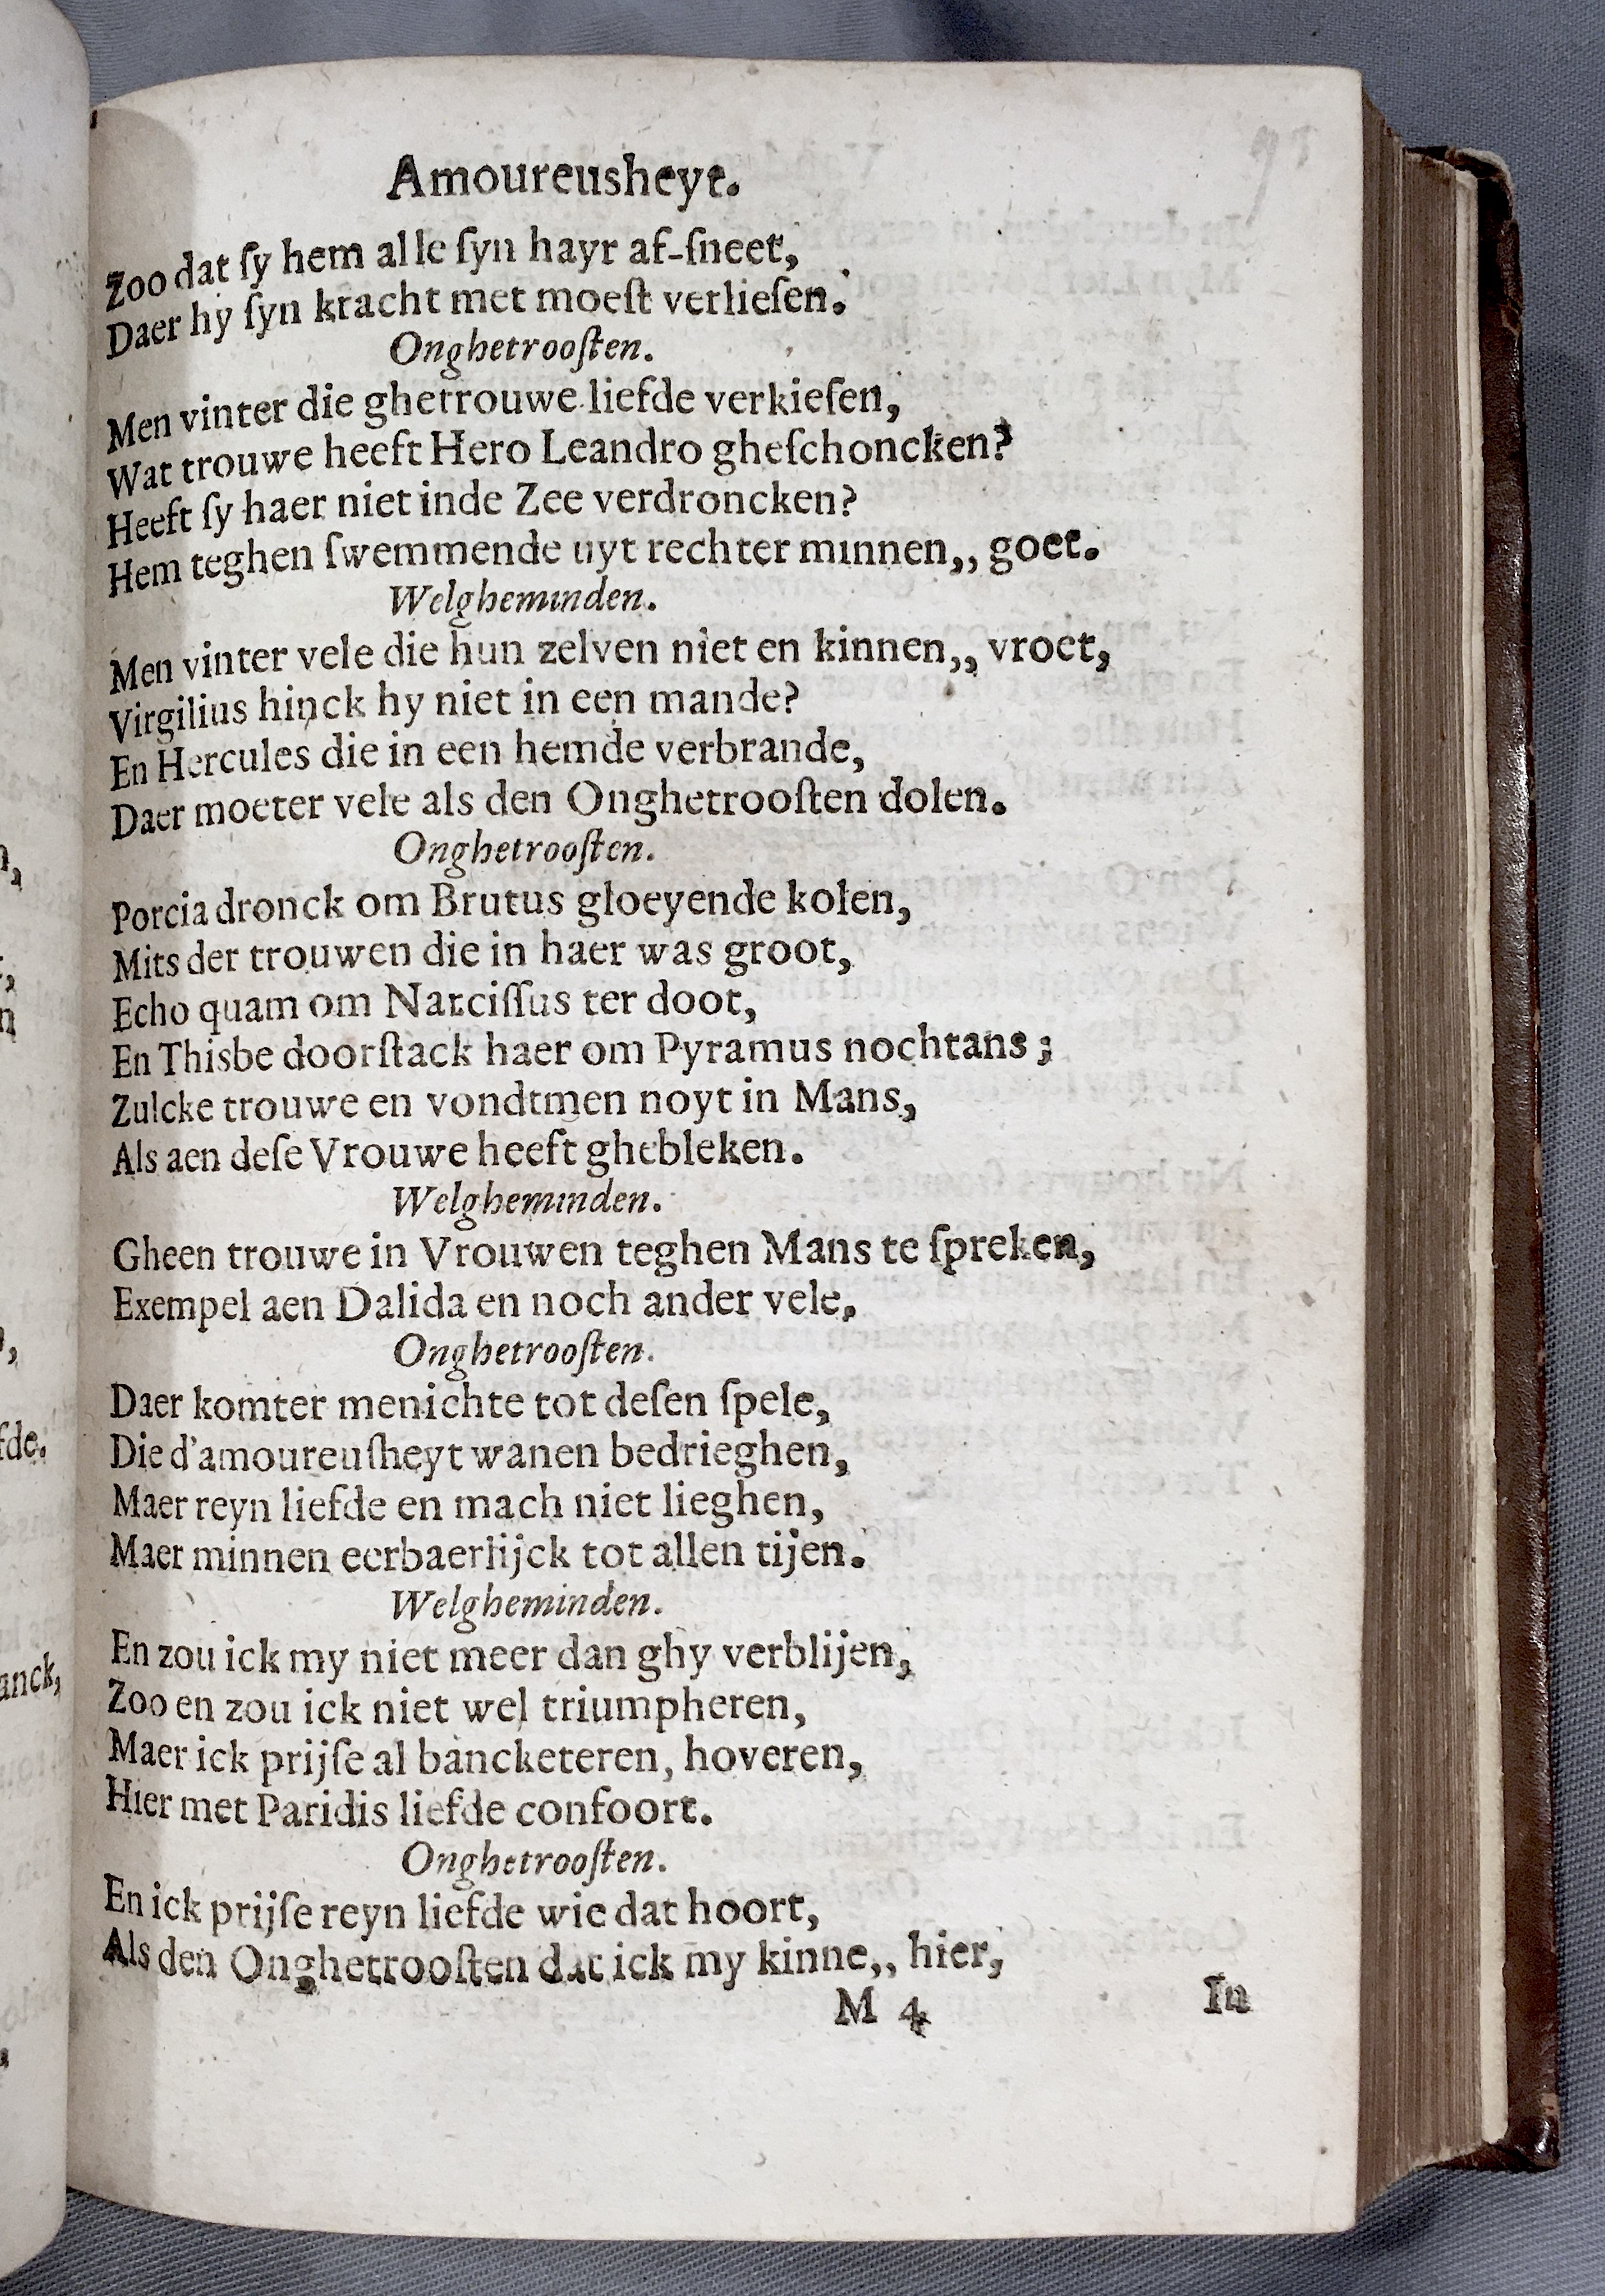 Amoureusheyt.
Zoo dat ſy hem alle ſyn hayr af-ſneet,
Daer hy ſyn kracht met moeſt verlieſen.
Onghetrooſten.
Men vinter die ghetrouwe liefde verkieſen,
Wat trouwe heeft Hero Leandro gheſchoncken?
Heeft ſy haer niet inde Zee verdroncken?
Hem teghen ſwemmende uyt rechter minnen,, goet.
Welgheminden.
Men vinter vele die hun zelven niet en kinnen,, vroet,
Virgilius hinck hy niet in een mande?
En Hercules die in een hemde verbrande,
Daer moeter vele als den Onghetrooſten dolen.
Onghetrooſten.
Porcia dronck om Brutus gloeyende kolen,
Mits der trouwen die in haer was groot,
Echo quam om Narciſſus ter doot,
En Thisbe doorſtack haer om Pyramus nochtans;
Zulcke trouwe en vondtmen noyt in Mans,
Als aen deſe Vrouwe heeft ghebleken.
Welgheminden.
Gheen trouwe in Vrouwen teghen Mans te ſpreken,
Exempel aen Dalida en noch ander vele.
Onghetrooſten.
Daer komter menichte tot deſen ſpele,
Die d'amoureuſheyt wanen bedrieghen,
Maer reyn liefde en mach niet lieghen,
Maer minnen eerbaerlijck tot allen tijen.
Welgheminden.
En zou ick my niet meer dan ghy verblijen,
Zoo en zou ick niet wel triumpheren,
Maer ick prijſe al bancketeren, hoveren,
Hier met Paridis liefde confoort.
Onghetrooſten.
En ick prijſe reyn liefde wie dat hoort,
Als den Onghetrooſten dat ick my kinne,, hier,
M 4 In